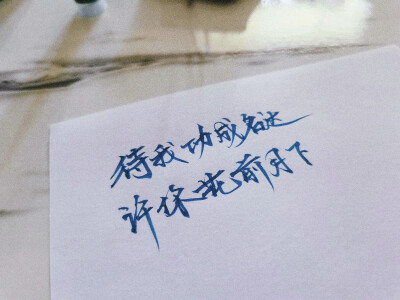 待我功成名达
许你花前月下